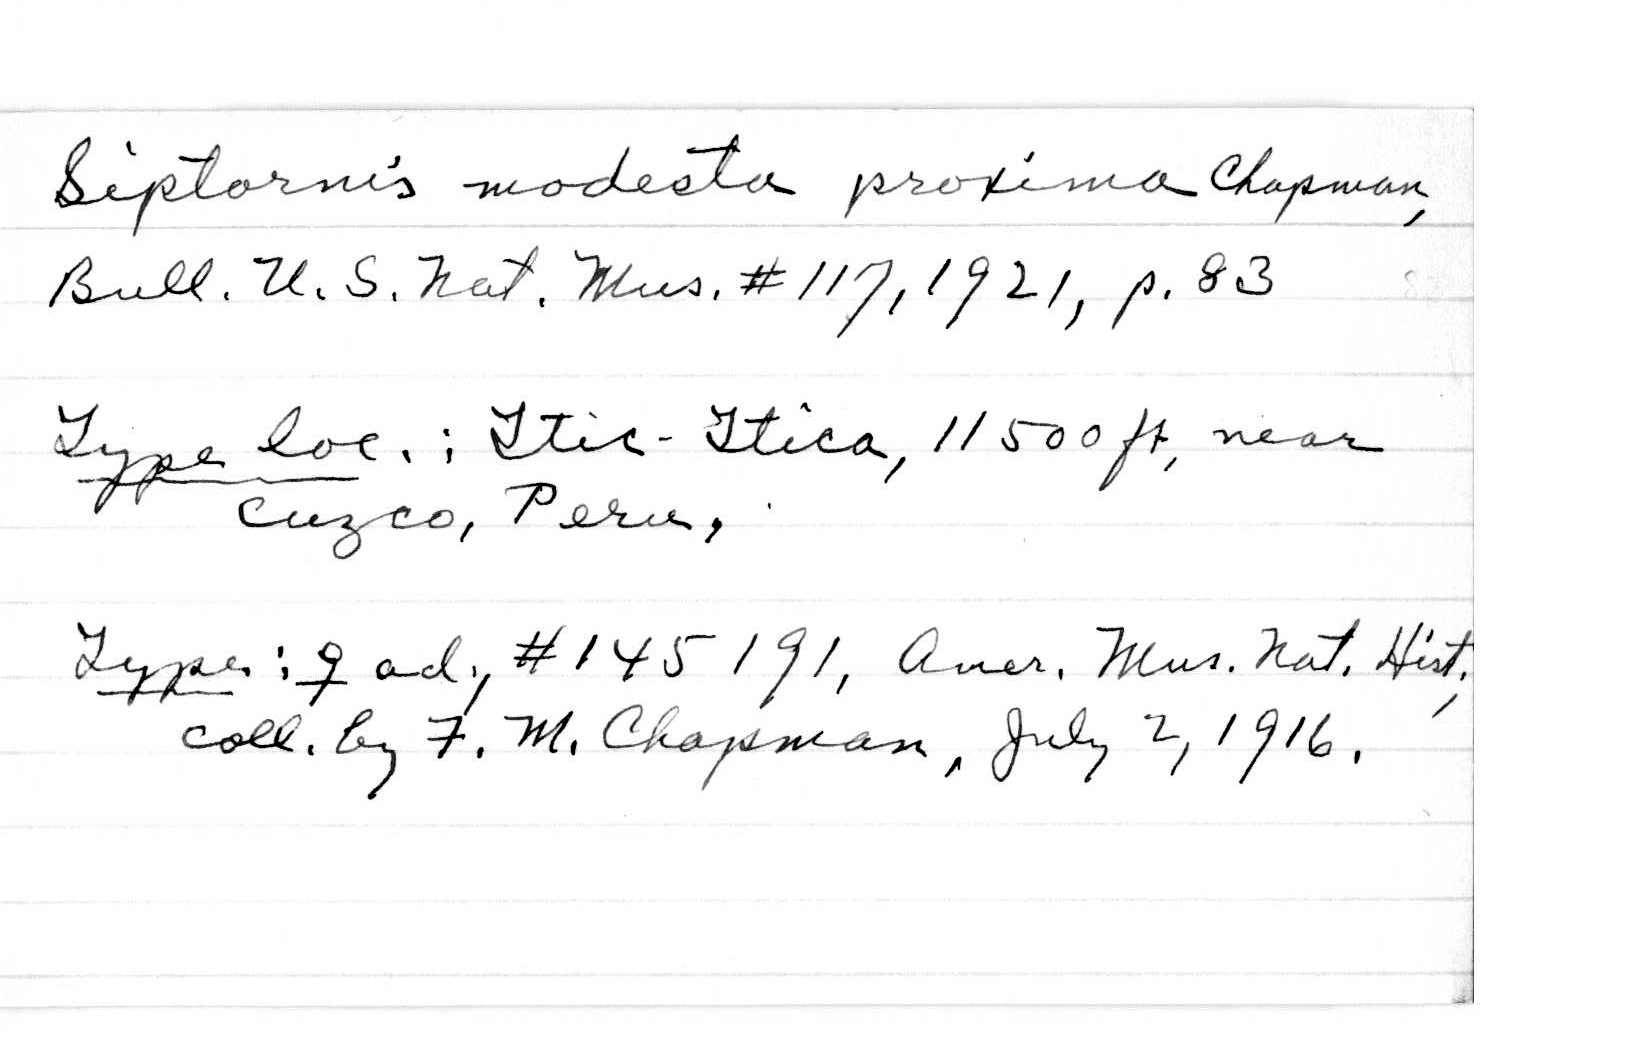 Siptornis modesta proxima Chapman,
Bull. U. S. Nat. Mus. #117, 1921, p. 83
Type loc.: Itic-Itica, 11500 ft, near
Cuzco, Peru,
Type: ♀ ad., #145191, Amer. Mus. Nat. Hist.,
coll. by F. M. Chapman, July 2, 1916.